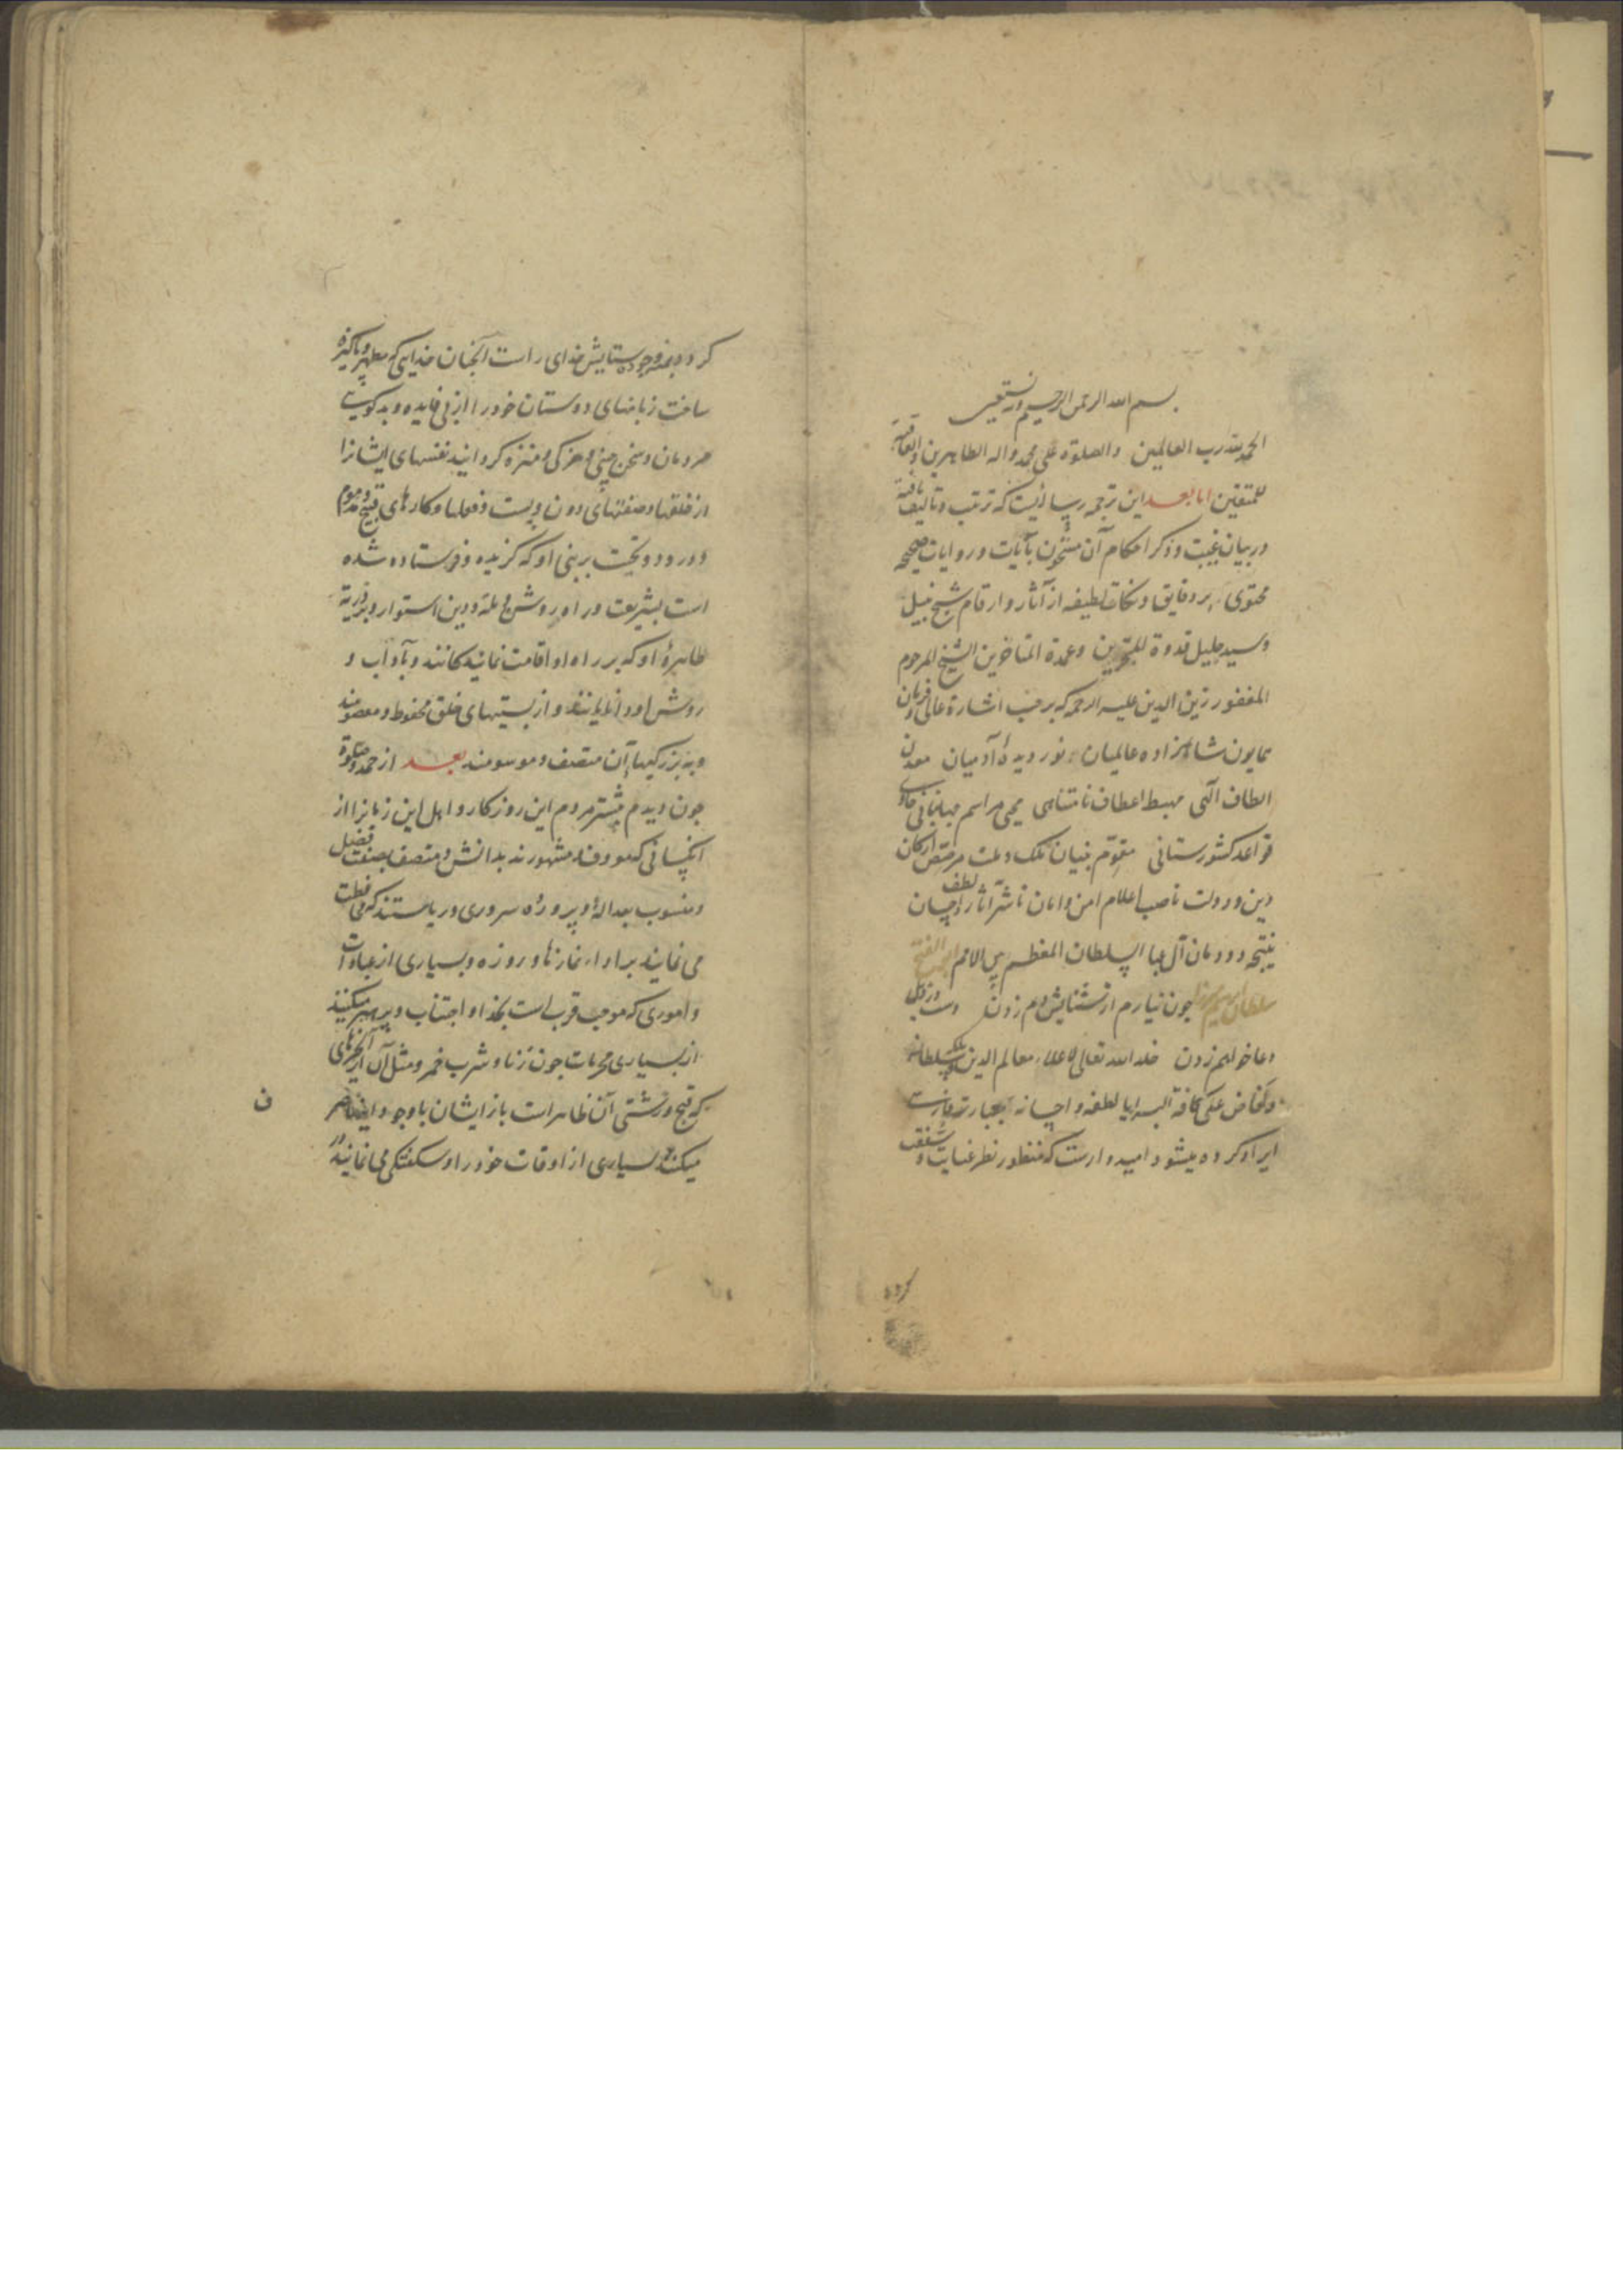 بسم الله الرحمن الرحیم وبه نستعین
الحمد لله رب العالمین والصلوة علی محمد واله الطاهرین والعاقبة
للمتقین اما بعد این ترجمه رساله ایست که ترتیب وتالیف یافته
در بیان غیبت وذکر احکام آن مشحون بآیات وروایات صحیحه
محتوی بر دقایق ونکات لطیفه از آثار وارقام شیخ نبیل
وسید جلیل قدوة المتبحرین وعمدة المتاخرین الشیخ المرحوم
المغفور زین الدین علیه الرحمه که بر حسب اشارهٔ عالی وفرمان
همایون شاهزاده عالمیان نور دیدهٔ آدمیان معدن
الطاف الهی مهبط اعطاف نامتناهی محیی مراسم جهانبانی حاوی
قواعد کشورستانی مقوم بنیان ملک وملت مرصص ارکان
دین ودولت ناصب اعلام امن وامان ناشر آثار لطف واحسان
نتیجه دودمان آل عبا السلطان المعظم بین الامم ابو الفتح
سلطان ابراهیم میرزا چون نیارم از ثنایش دم زدن دست در ذیل
دعا خواهم زدن خلد الله تعالی لاعلاء معالم الدین ملکه وسلطانه
وافاض علی کافة البرایا لطفه واحسانه بعبارت فارسیت
ایراد کرده میشود امیدوارست که منظور نظر عنایت وشفقت
کرده
کرده بمنه وجوده ستایش خدای راست آنچنان خدایی که مطهر وپاکیزه
ساخت زبانهای دوستان خود را از بی فایده وبد کوییت
مردمان وسخن چینی وهرزکی ومنزه کردانید نفسهای ایشانرا
از خلقها وصفتهای دون وپست وفعلها وکارهای قبیح ومذموم
ودرود وتحیت بر نبی او که کزیده وفرستاده شده
است بشریعت وراه روشن وملة ودین استوار وبر ذریة
طاهرهٔ او که بر راه او اقامت نماینده کانند وبآداب و
روش او دانایانند واز پستیهای خلق محفوظ ومعصومند
وبه بزرکیهای آن متصف وموسومند بعد از حمد وصلوة
چون دیدم بیشتر مردم این روزکار واهل این زمانرا از
آنکسانی که معروف ومشهورند بدانش ومتصف بصفت فضل
ومنسوب بعدالة وپیرو راه سروری وریاستند که محافظت
می نمایند بر اداء نمازها وروزه وبسیاری از عبادات
واموری که موجب قرب است بخدا واجتناب وپرهیز میکنند
از بسیاری محرمات چون زنا وشرب خمر ومثل آن از چیزهای
که قبح وزشتی آن ظاهر است باز ایشان با وجود این
میکنند بسیاری از اوقات خود را وسکفتکی می نمایند
ف